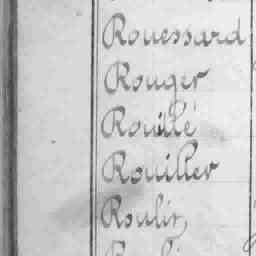 Rouessard
Rouger
Rouillé
Rouiller
Roulin